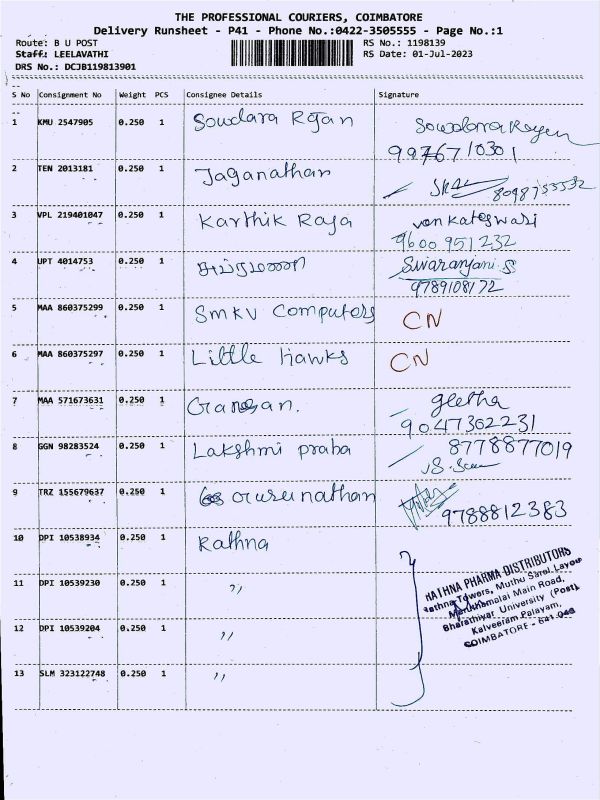 THE PROFESSIONAL COURIERS, COIMBATORE
Delivery Runsheet - P41 - Phone No.:0422-3505555 - Page No.:1
Route: B U POST RS No.: 1198139
Staff: LEELAVATHI RS Date: 01-Jul-2023
DRS No.: DCJB119813901
S No Consignment No Weight PCS Consignee Details Signature
1 KMU 2547905 0.250 1 Sowdara Rajan Sowdara Rajan
9976710301
2 TEN 2013181 0.250 1 Jaganathan
8098755532
3 VPL 219401047 0.250 1 Karthik Raja Venkateswari
9600 951 232
4 UPT 4014753 0.250 1 Swaranjani S
9789108172
5 MAA 860375299 0.250 1 SMKV Computers CN
6 MAA 860375297 0.250 1 Little hawks CN
7 MAA 571673631 0.250 1 Ganesan. geetha
9047302231
8 GGN 98283524 0.250 1 Lakshmi praba 8778877019
9 TRZ 155679637 0.250 1 Gurunathan 9788812383
10 DPI 10538934 0.250 1 Rathna
11 DPI 10539230 0.250 1 "
12 DPI 10539204 0.250 1 "
13 SLM 323122748 0.250 1 "
RATHNA PHARMA DISTRIBUTORS
Rathna Towers, Muthu Sarel Layout
Marudhamalai Main Road,
Bharathiyar University (Post),
Kalveeram Palayam,
COIMBATORE - 641 046